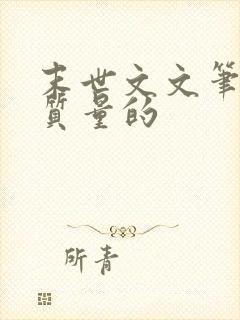 末世文文筆
質量的
所青